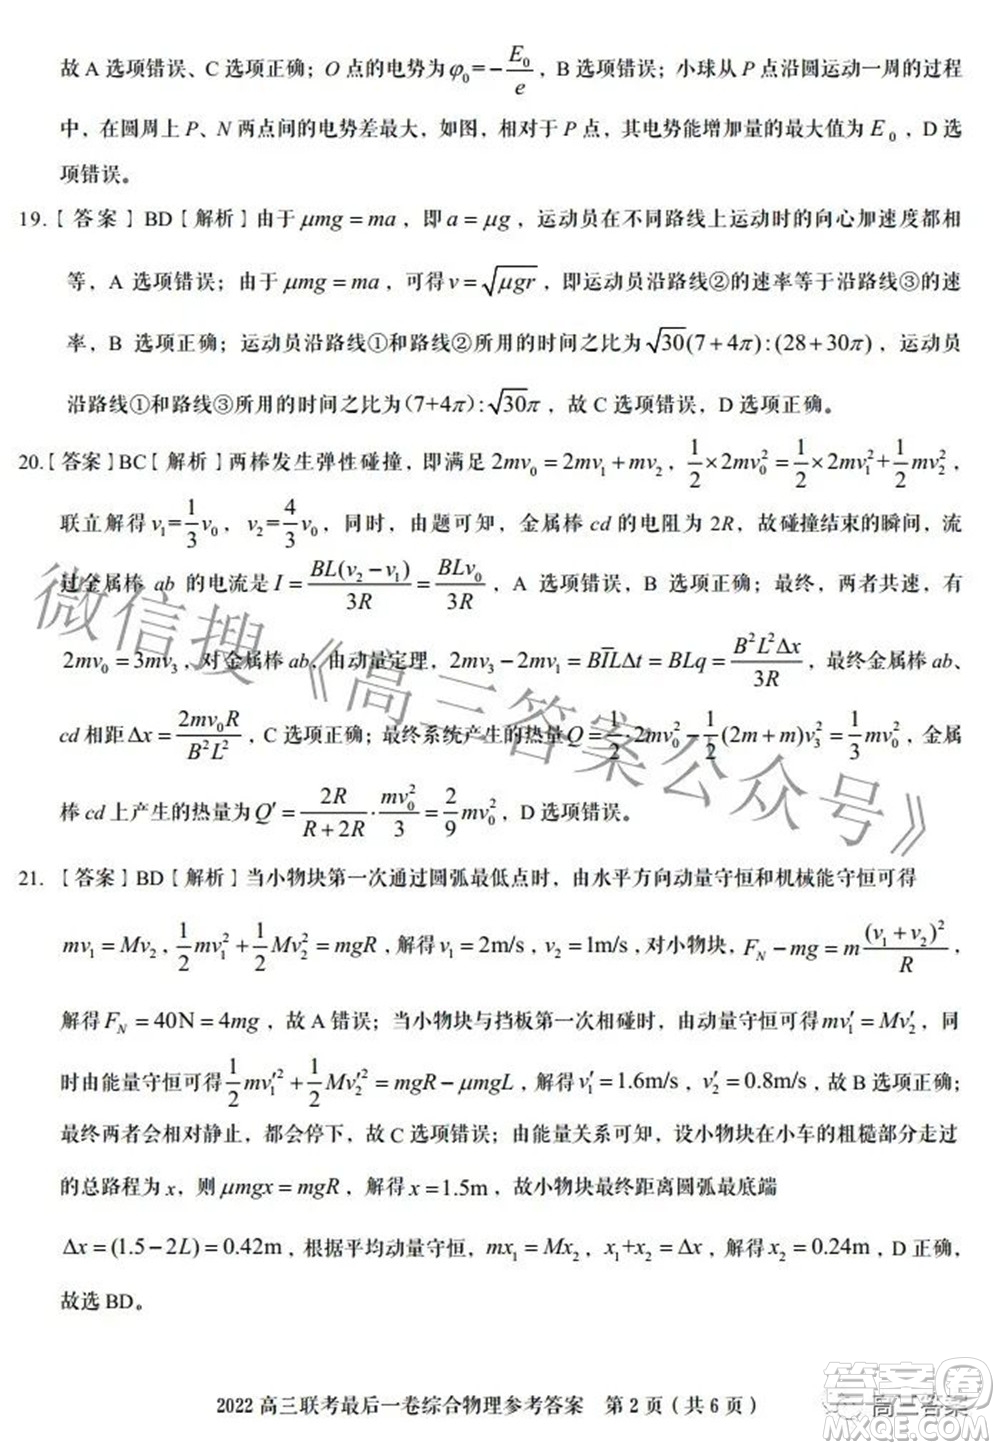 故 A 选项错误、C 选项正确；O 点的电势为 φ₀=−E₀/e，B 选项错误；小球从 P 点沿圆运动一周的过程
中，在圆周上 P、N 两点间的电势差最大，如图，相对于 P 点，其电势能增加量的最大值为 E₀，D 选
项错误。
19.【 答案 】BD【 解析】由于 μmg = ma，即 a = μg，运动员在不同路线上运动时的向心加速度都相
等，A 选项错误；由于 μmg = ma，可得 v = √μgr，即运动员沿路线②的速率等于沿路线③的速
率，B 选项正确；运动员沿路线①和路线②所用的时间之比为 √30(7+4π):(28+30π)，运动员
沿路线①和路线③所用的时间之比为 (7+4π):√30π，故 C 选项错误，D 选项正确。
20.【 答案】BC【 解析】两棒发生弹性碰撞，即满足 2mv₀ = 2mv₁ + mv₂，1/2×2mv₀²=1/2×2mv₁²+1/2mv₂²，
联立解得 v₁=1/3v₀，v₂=4/3v₀，同时，由题可知，金属棒 cd 的电阻为 2R，故碰撞结束的瞬间，流
过金属棒 ab 的电流是 I = BL(v₂−v₁)/3R = BLv₀/3R，A 选项错误，B 选项正确；最终，两者共速，有
2mv₀=3mv₃，对金属棒 ab，由动量定理，2mv₃−2mv₁=BI̅LΔt=BLq=B²L²Δx/3R，最终金属棒 ab、
cd 相距 Δx = 2mv₀R/B²L²，C 选项正确；最终系统产生的热量 Q=1/2·2mv₀²−1/2(2m+m)v₃²=1/3mv₀²，金属
棒 cd 上产生的热量为 Q′ = 2R/(R+2R)·mv₀²/3=2/9mv₀²，D 选项错误。
21.【答案】BD【解析】当小物块第一次通过圆弧最低点时，由水平方向动量守恒和机械能守恒可得
mv₁ = Mv₂，1/2mv₁²+1/2Mv₂²=mgR，解得 v₁ = 2m/s，v₂ = 1m/s，对小物块，F_N − mg = m(v₁+v₂)²/R，
解得 F_N = 40N = 4mg，故 A 错误；当小物块与挡板第一次相碰时，由动量守恒可得 mv₁′ = Mv₂′，同
时由能量守恒可得 1/2mv₁′²+1/2Mv₂′²=mgR−μmgL，解得 v₁′=1.6m/s，v₂′=0.8m/s，故 B 选项正确；
最终两者会相对静止，都会停下，故 C 选项错误；由能量关系可知，设小物块在小车的粗糙部分走过
的总路程为 x，则 μmgx = mgR，解得 x = 1.5m，故小物块最终距离圆弧最底端
Δx = (1.5−2L) = 0.42m，根据平均动量守恒，mx₁ = Mx₂，x₁+x₂ = Δx，解得 x₂ = 0.24m，D 正确，
故选 BD。
微信搜《高三答案公众号》
2022 高三联考最后一卷综合物理参考答案 第 2 页（共 6 页）
高三答案
答案圈
MXQE.COM